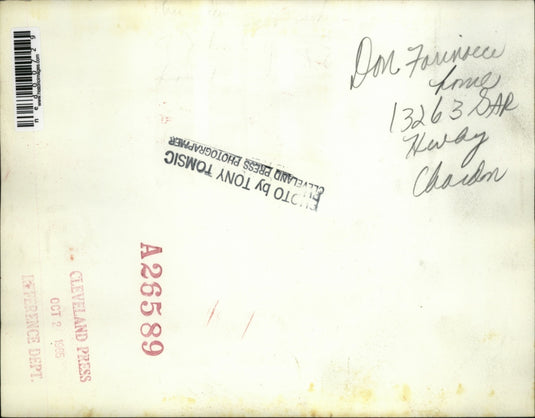 Don Farinacci
home
13263 GAR
Hway
Chardon
PHOTO by TONY TOMSIC
CLEVELAND PRESS PHOTOGRAPHER
A26589
CLEVELAND PRESS
OCT 2 1965
REFERENCE DEPT.